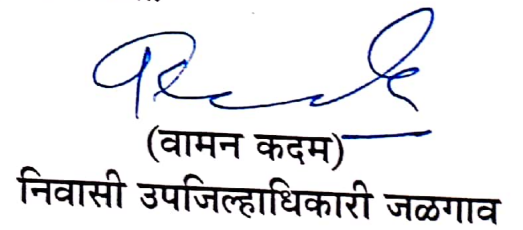 (वामन कदम)
निवासी उपजिल्हाधिकारी जळगाव